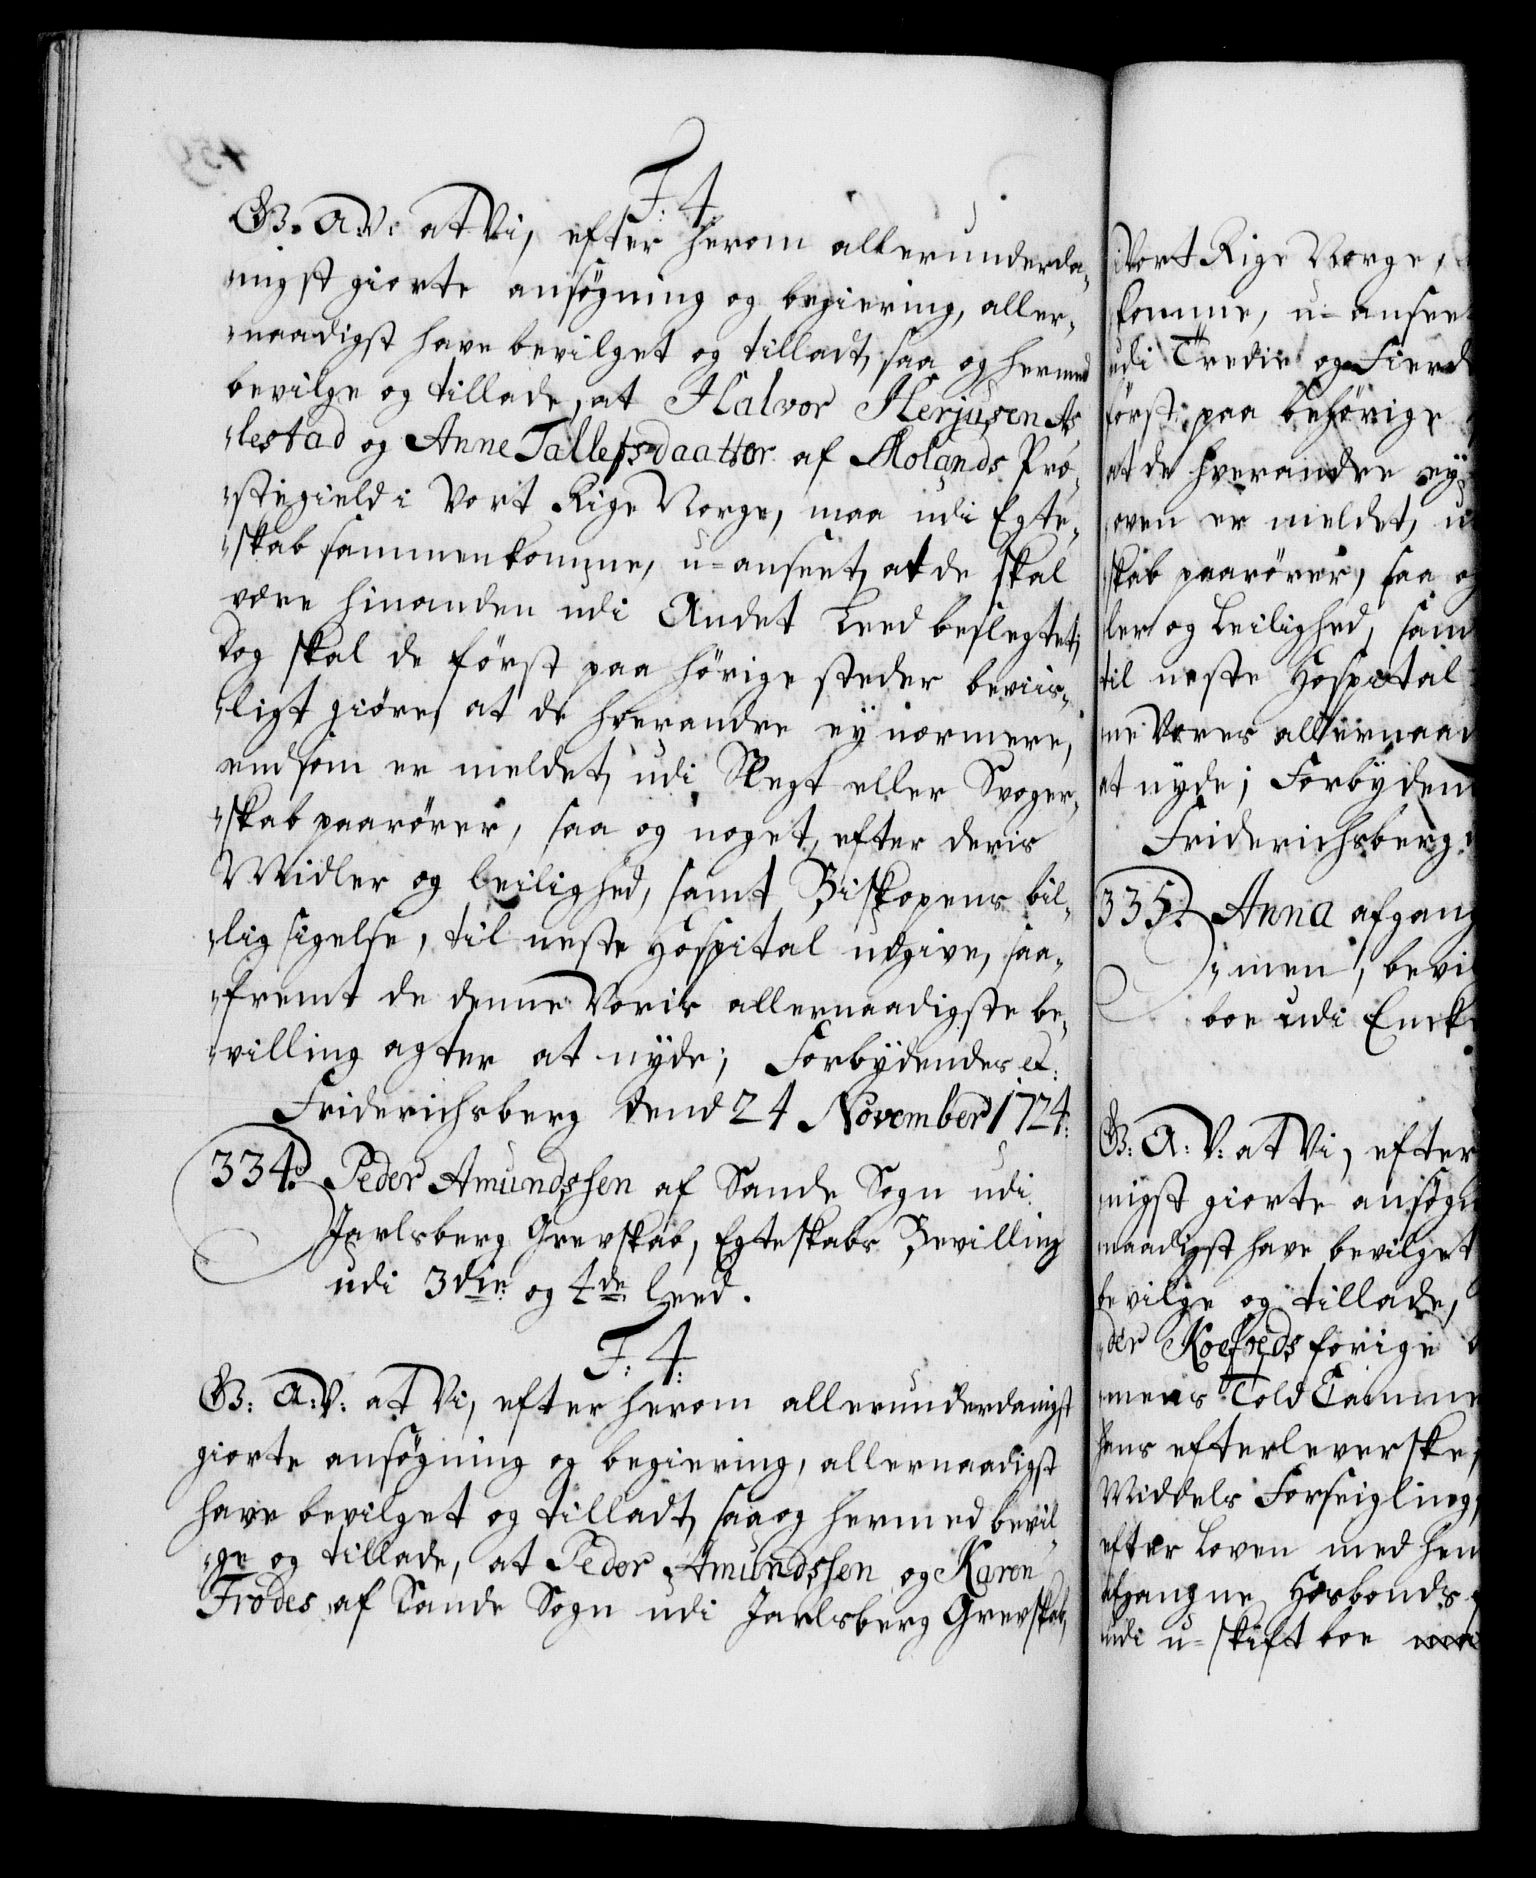 F: 4.
G: A: V: at Vi, efter herom allerunderda-
nigst giorte ansøgning og begiering, aller-
naadigst have bevilget og tilladt, saa og hermed
bevilge og tillade, at Halvor Herjusen As-
lestad og Anne Tallefsdaatter af Molands Præ-
stegield i Vort Rige Norge, maa udi Egte-
skab sammenkomme, u-anseet, at de skal
være hinanden udi Andet Leed beslegtet;
Dog skal de først paa hörige steder beviis-
ligt giöre, at de hverandre ey nærmere,
end som er meldet, udi Slegt eller Svoger-
skab paarörer, saa og noget, efter deris
Midler og leilighed, samt Biskopens bil-
lig sigelse, til neste Hospital udgive, saa-
fremt de denne Voris allernaadigste be-
villing agter at nyde; Forbydendes et:
Friderichsberg dend 24 November 1724:
334. Peder Amundssen af Sande Sogn udi
Jarlsberg Grevskab, Egteskabs Bevilling
udi 3die og 4de Leed.
F: 4.
G: A: V: at Vi, efter herom allerunderdanigst
giorte ansøgning og begiering, allernaadigst
have bevilget og tilladt, saa og hermed bevil-
ge og tillade, at Peder Amundssen og Karen
Frodes af Sande Sogn udi Jarlsberg Grevskab,
Vort Rige Norge,
komme, u-anseet
udi Tredie og Fierd
först paa behörige
at de hverandre ey
oven er meldet, u
skab paarörer, saa og
ler og Leilighed, sam
til neste Hospital
ne Vores allernaad
at nyde; Forbyden
Friderichsberg
335. Anna afgang
men, bevil
boe udi Encke
G: A: V: at Vi, efter
nigst giorte ansøgn
naadigst have bevilget
bevilge og tillade,
der Koefœds forige
mens Told Camme
hans efterleverske,
Middels Forseigling,
efter Loven med hen
afgangne Hosbonds
udi u-skift boe